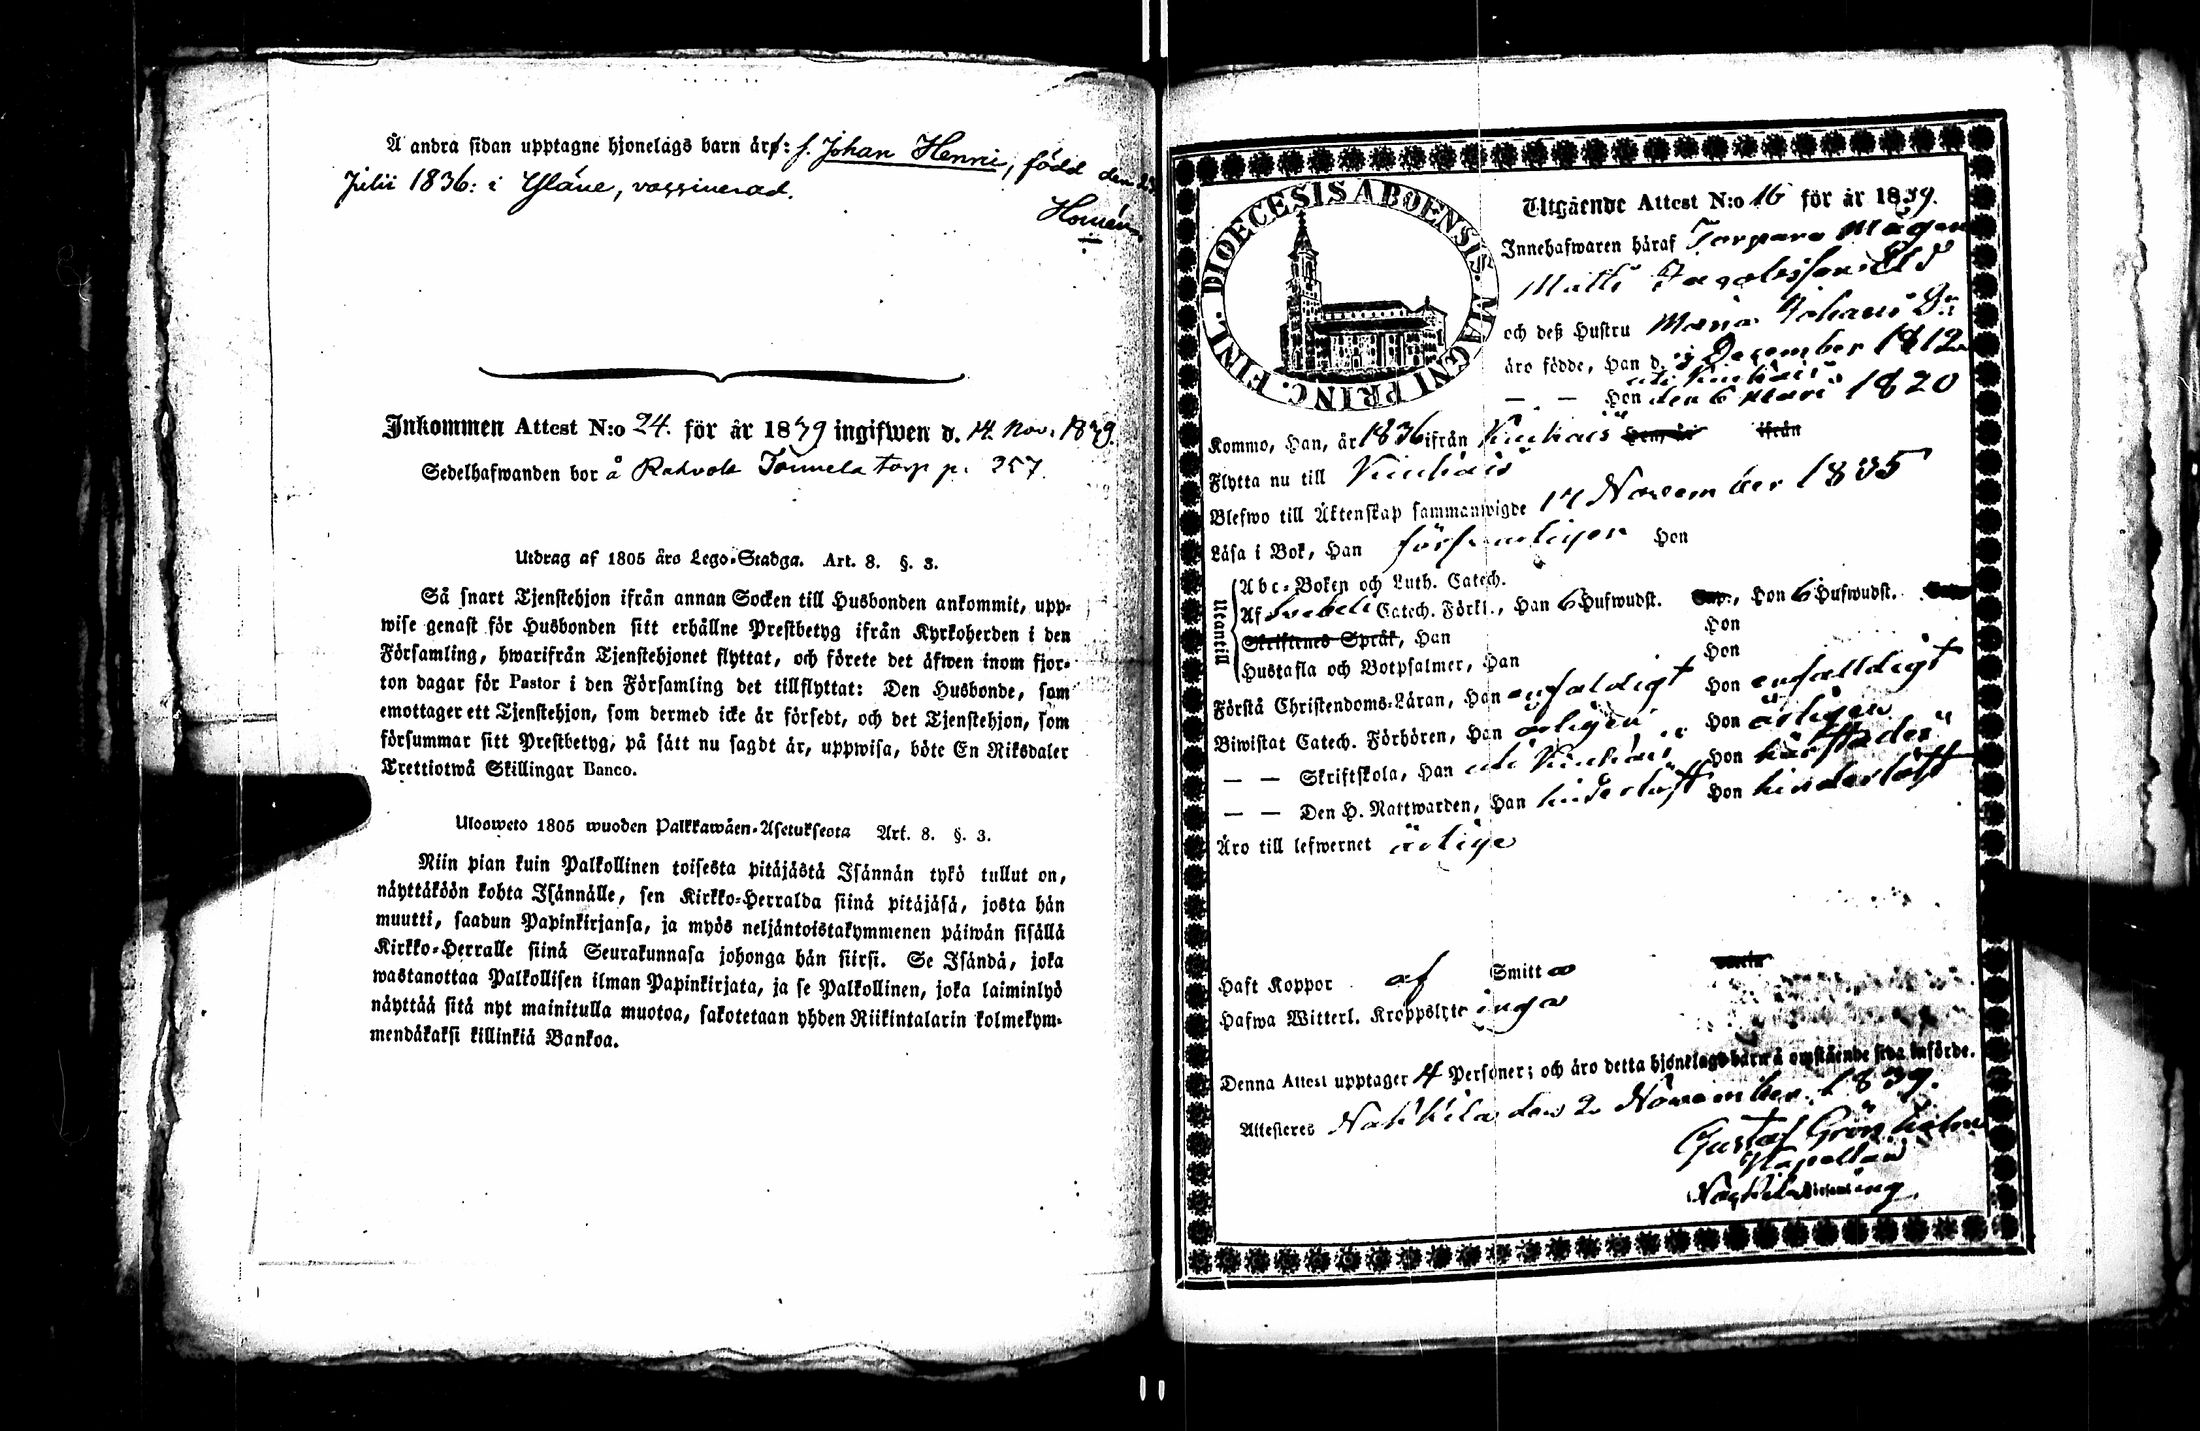 Å andra sidan upptagne hjonelags barn är: s. Johan Henric, född den 23
Julii 1836: i Yläne, vaccinerad.
Homén
Inkommen Attest N:o 24. för år 1839 ingifwen d. 14. Nov. 1839.
Sedelhafwanden bor å torp p. 257.
Utdrag af 1805 års Lego-Stadga. Art. 8. §. 3.
Så snart Tjenstehjon ifrån annan Socken till Husbonden ankommit, upp-
wise genast för Husbonden sitt erhållne Prestbetyg ifrån Kyrkoherden i den
Församling, hwarifrån Tjenstehjonet flyttat, och förete det äfwen inom fjor-
ton dagar för Pastor i den Församling det tillflyttat: Den Husbonde, som
emottager ett Tjenstehjon, som dermed icke är försedt, och det Tjenstehjon, som
försummar sitt Prestbetyg, på sätt nu sagdt är, uppwisa, böte En Riksdaler
Trettiotwå Skillingar Banco.
Ulosweto 1805 wuoden Palkkawäen-Asetuksesta Art. 8. §. 3.
Niin pian kuin Palkollinen toisesta pitäjästä Isännän tykö tullut on,
näyttäköön kohta Isännälle, sen Kirkko-Herralda siinä pitäjäsä, josta hän
muutti, saadun Papinkirjansa, ja myös neljäntoistakymmenen päiwän sisällä
Kirkko-Herralle siinä Seurakunnasa johonga hän siirsi. Se Isändä, joka
wastanottaa Palkollisen ilman Papinkirjata, ja se Palkollinen, joka laiminlyö
näyttää sitä nyt mainitulla muotoa, sakotetaan yhden Riikintalarin kolmekym-
mendäkaksi killinkiä Bankoa.
DIOECESIS ABOENSIS. MAGNI PRINC. FINL.
Utgående Attest N:o 16 för år 1839.
Innehafwaren häraf Torpare Mågen
Matts Jacobsson Eld
och deß Hustru Maria Johans Dr
äro födde, Han d. December 1812
uti Kiukais
— — Hon den 6 Mars 1820
Kommo, Han, år 1836 ifrån Kiukais Hon, år ifrån
Flytta nu till Kiukais
Blefwo till Äktenskap sammanwigde 17 November 1835
Läsa i Bok, Han försvarligen Hon
Utantill
Abc-Boken och Luth. Catech.
Af Svebeli Catech. Förkl., Han 6 Hufwudst. Sup., Hon 6 Hufwudst.
Skriftenes Språk, Han Hon
Hustafla och Botpsalmer, Han Hon
Förstå Christendoms-Läran, Han enfaldigt Hon enfalldigt
Biwistat Catech. Förhören, Han årligen Hon årligen
— — Skriftskola, Han uti Kiukais Hon härstädes
— — Den H. Nattwarden, Han hinderlöst Hon hinderlöst
Äro till lefwernet ärlige
Haft Koppor af Smitta
Hafwa Witterl. Kroppslyte inga
Denna Attest upptager 4 Personer; och äro detta hjonelags barn å omstående sida införde.
Attesteres Nakkila den 2 November 1839.
Gustaf Grönholm
Kapellan
Nakkila Församling.